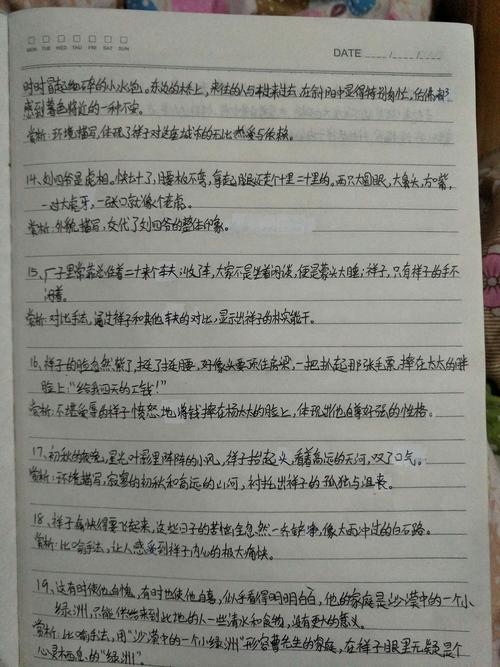 MON TUE WED THU FRI SAT SUN
DATE / /
时时冒起些碎的小水泡。东边的桥上,来往的人与车过来过去,在斜阳中显得特别匆忙,仿佛都
感到暮色将近的一种不安。
赏析:环境描写,体现了祥子对这座城市的无比热爱与依恋。
14、刘四爷是虎相。快七十了,腰板不弯,拿起腿还走个十里二十里的。两只大圆眼,大鼻头,方嘴,
一对大虎牙,一张口就像个老虎。
赏析:外貌描写,交代了刘四爷的整体印象。
15、厂子里靠常总住着二十来个车夫;收了车,大家不是坐着闲谈,便是蒙头大睡;祥子,只有祥子的手不
闲着。
赏析:对比手法,通过祥子和其他车夫的对比,显示出祥子的朴实能干。
16、祥子的脸忽然紫了,挺了挺腰,好像头要顶住房梁,一把抓起那张毛票,摔在太太的胖
脸上:“给我四天的工钱!”
赏析:不堪受辱的祥子愤怒地将钱摔在杨太太的脸上,体现出他自尊好强的性格。
17、初秋的夜晚,星光叶影里阵阵的小风,祥子抬起头,看着高远的天河,叹了口气。
赏析:环境描写,寂寥的初秋和高远的山河,衬托出祥子的孤独与沮丧。
18、祥子痛快得要飞起来,这些日子的苦恼全忽然一齐铲净,像大雨冲过的白石路。
赏析:比喻手法,让人感受到祥子内心的极大痛快。
19、这有时使他自愧,有时也使他自喜,似乎看得明明白白,他的家庭是沙漠中的一个小
绿洲,只能供给来到此地的人一些清水和食物,没有更大的意义。
赏析:比喻手法,用“沙漠中的一个小绿洲”形容曹先生的家庭,在祥子眼里无疑是个
心灵栖息的“绿洲”。